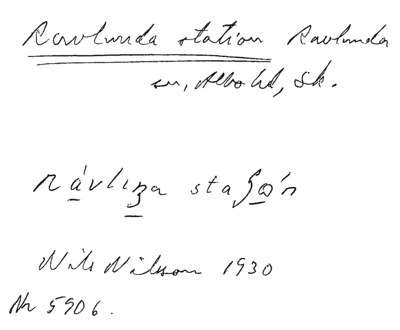 Ravlunda station Ravlunda
sn, Albo hd, Sk.
Nils Nilsson 1930
Nr 5906.